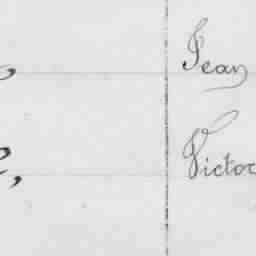 Jean
Victor